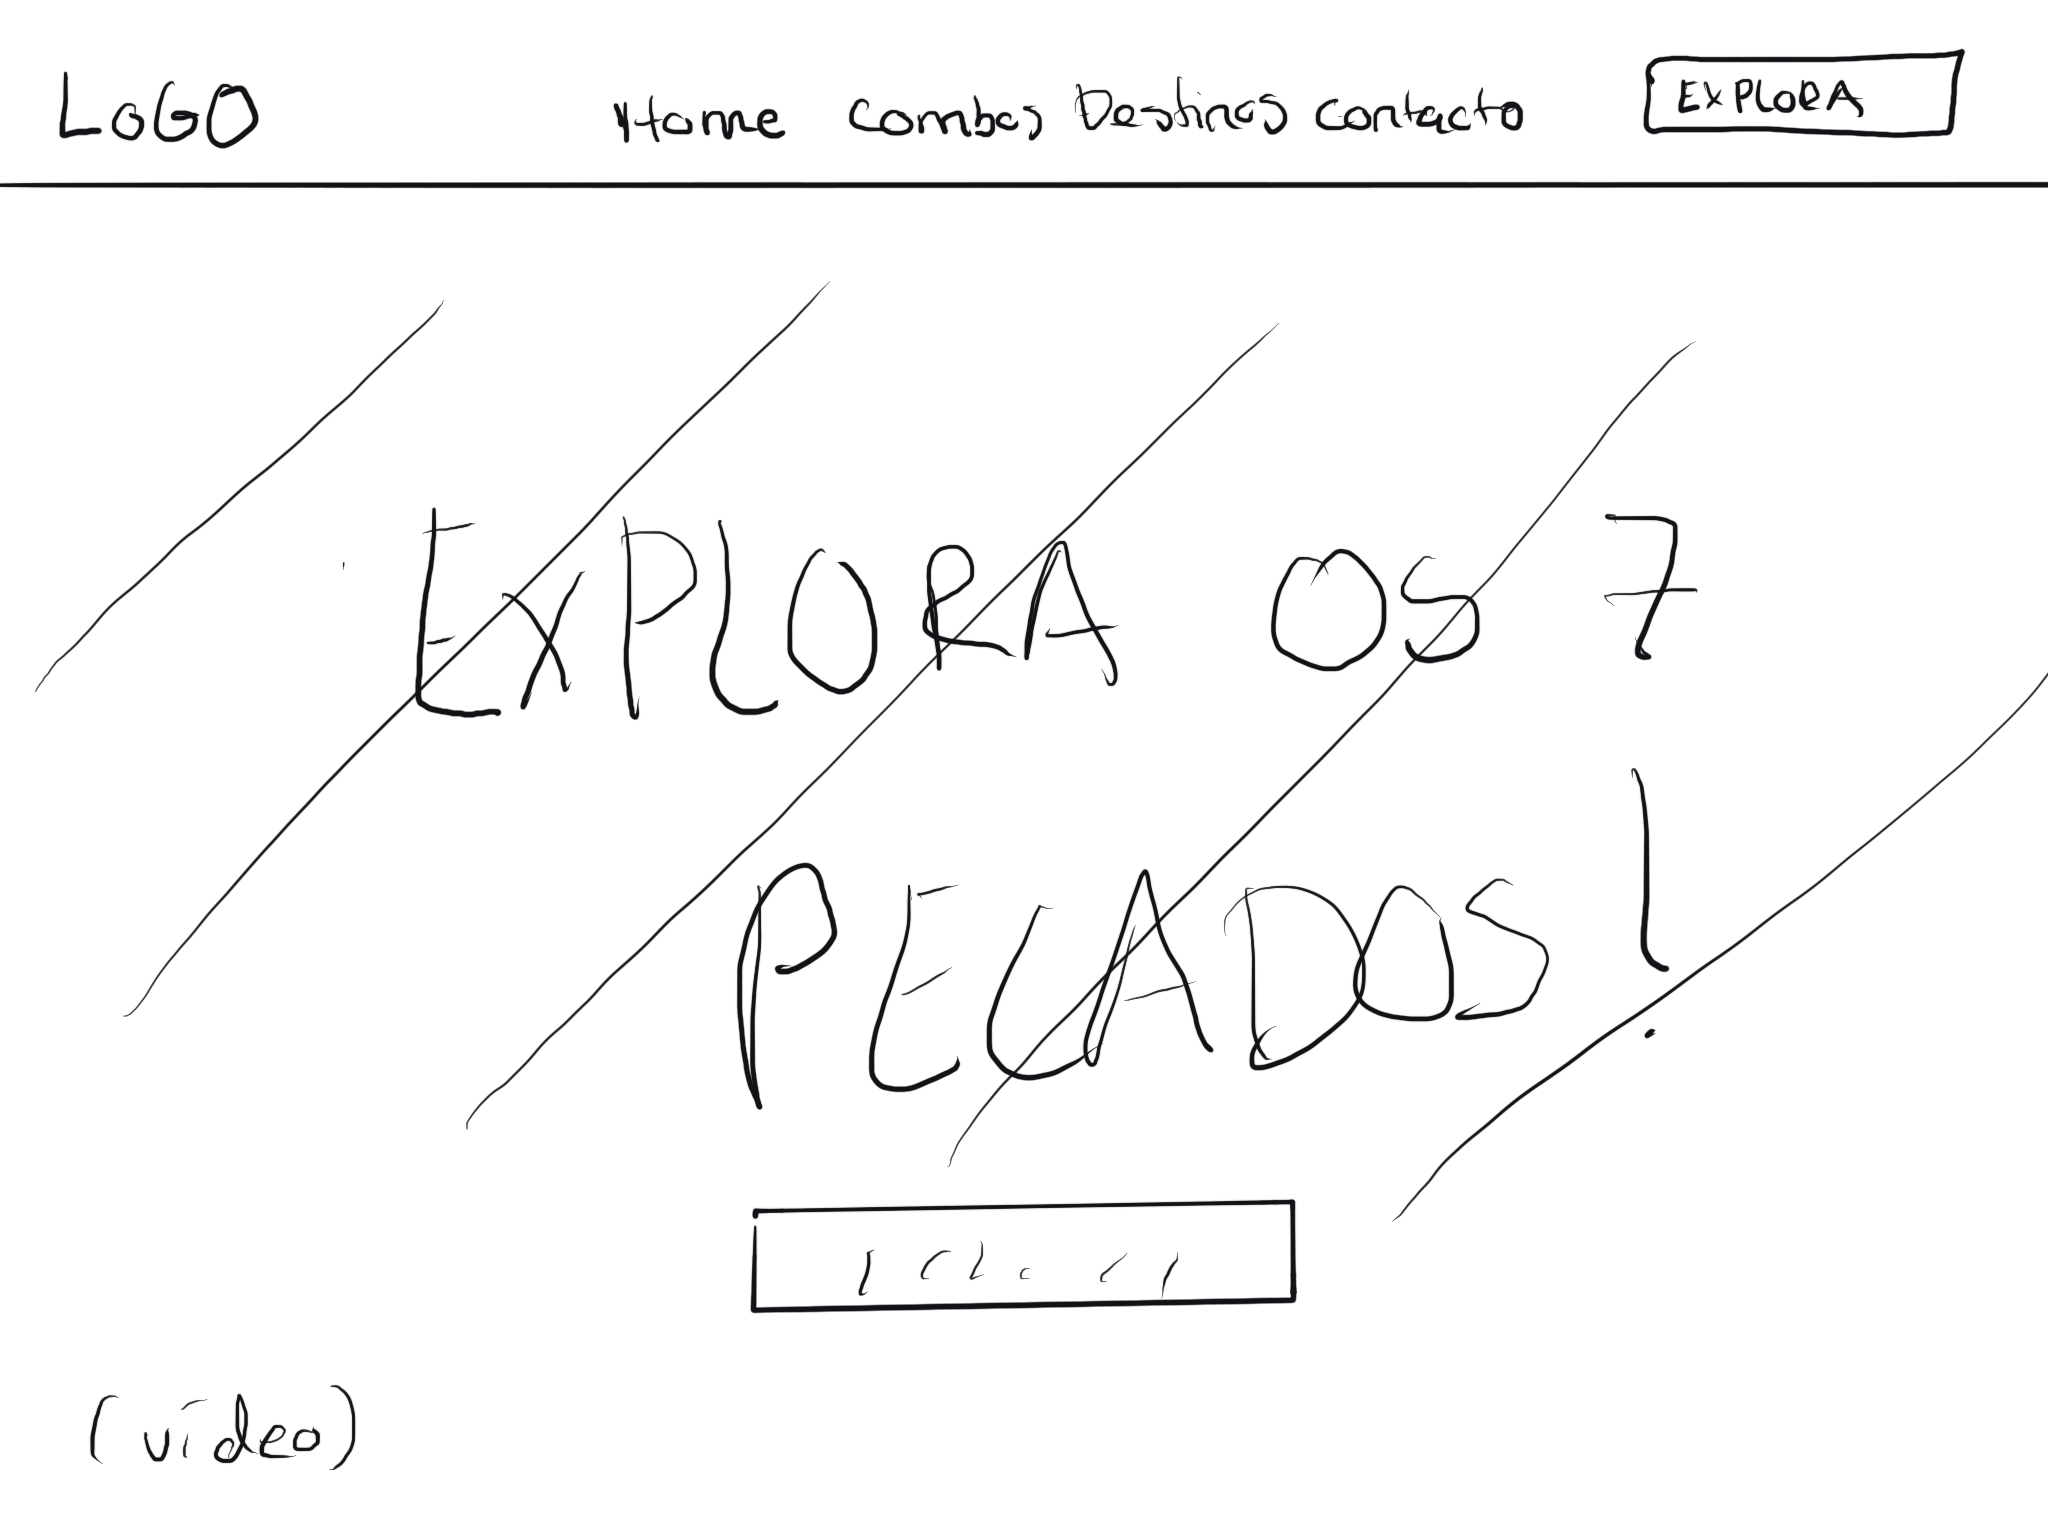 LOGO Home Combos Destinos contacto EXPLORA
EXPLORA OS 7
PECADOS!
(vídeo)